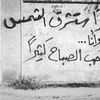 ستشرق الشمس
وأنا...
أحب الصباح كثيراً